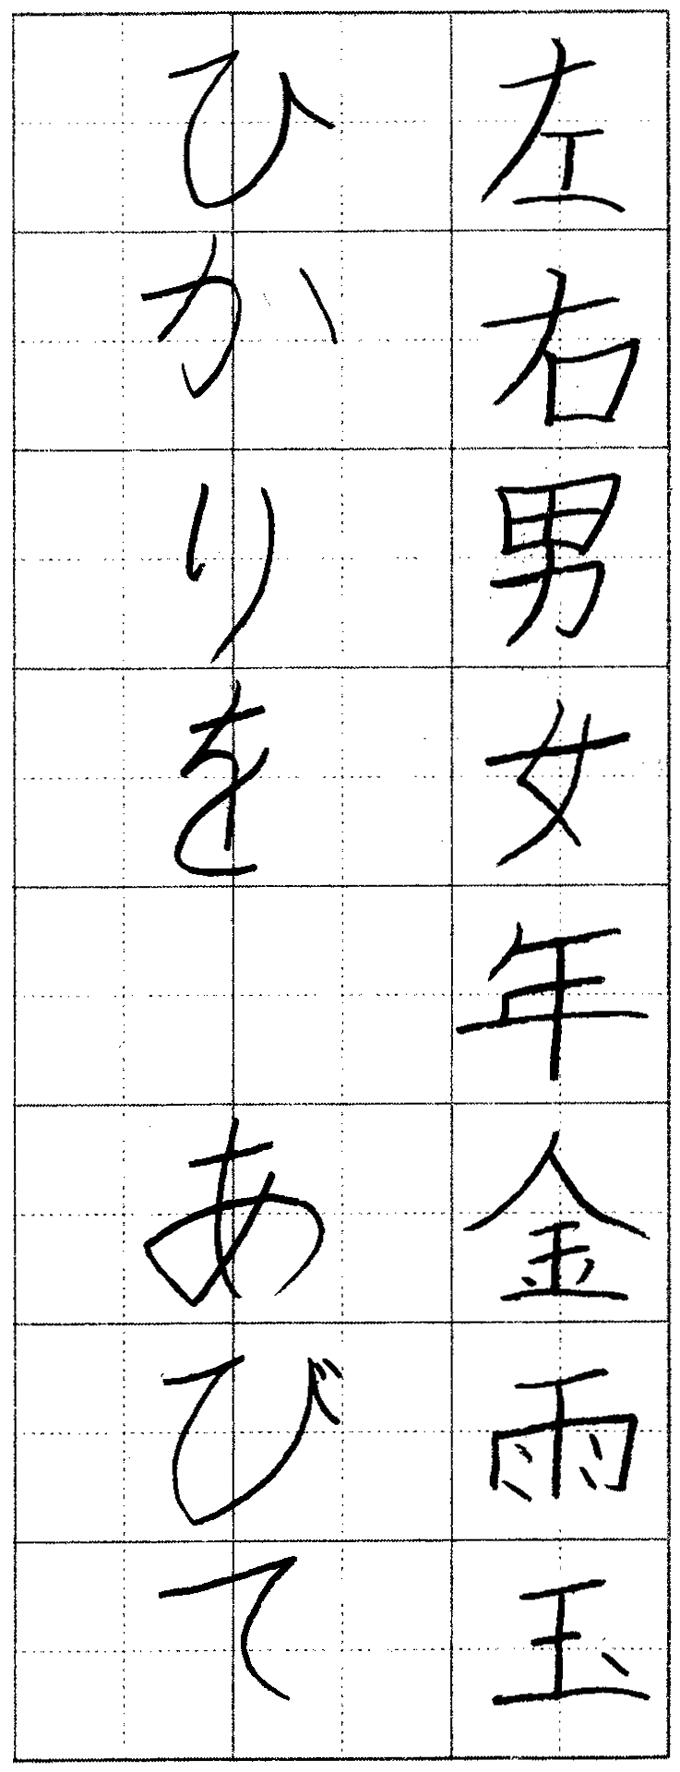 左右男女年金雨玉
ひかりを　あびて